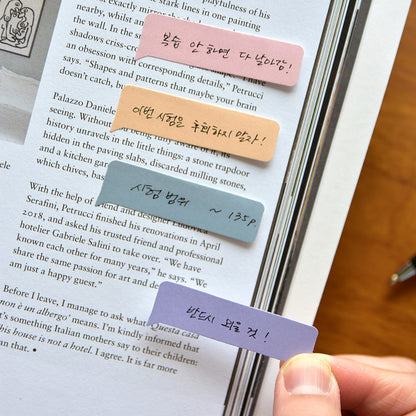 nearby, whilst an
stark lines in one painting
exactly mirror the
the wall. In the s
shadows criss-cro
an obsession with corresponding details," Petrucci
says. "Shapes and patterns that maybe your brain
doesn't catch, b
복습 안 하면 다 날아감!
이번 시험은 후회하지 말자!
Palazzo Daniele
seeing. Without
history unravels
hidden in the paving slabs, discarded milling stones,
and a kitchen gar
which chives, bas
시험 범위 ~ 135p.
With the help of
friend and designer Ludovica
Serafini, Petrucci finished his renovations in April
2018, and asked his trusted friend and professional
hotelier Gabriele Salini to take over. "We have
known each other for many years," he says. "We
share the same passion for art and de
am just a happy guest."
Before I leave, I manage to ask what Questa casa
non è un albergo' means. I'm kindly informed that
t's something Italian mothers say to their children:
his house is not a hotel. I agree. It is far more
an that.
반드시 외울 것!